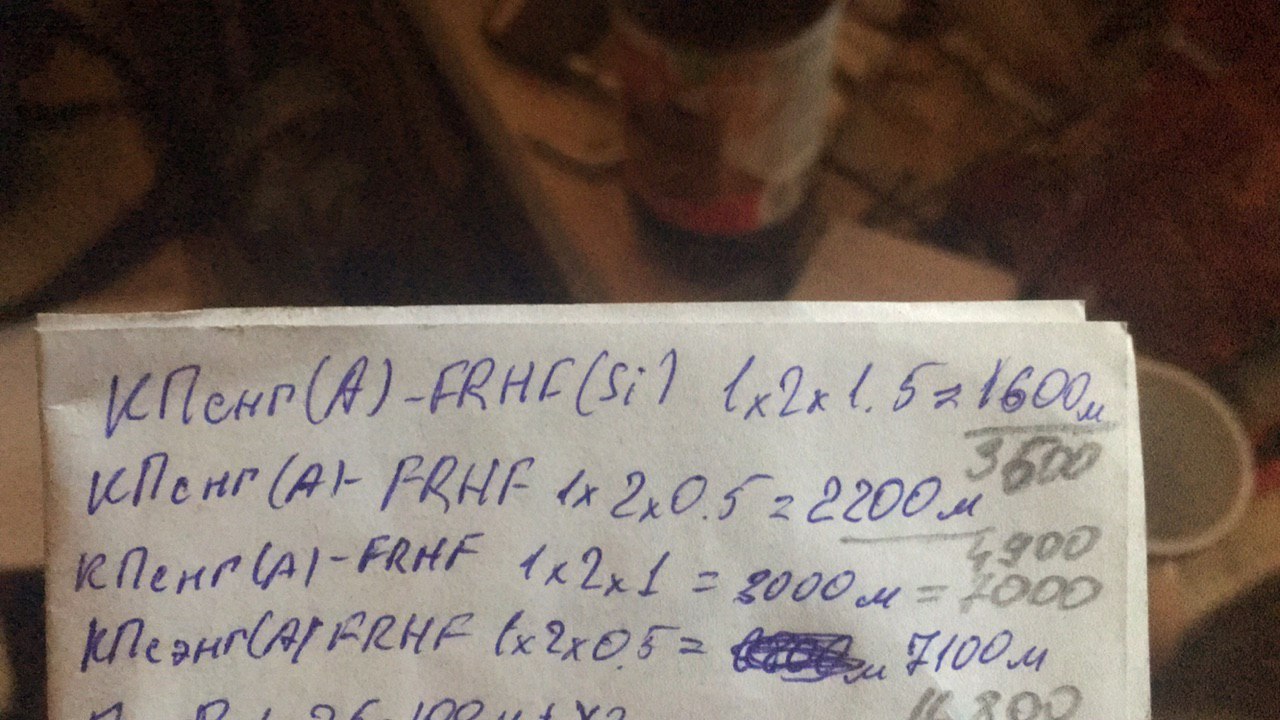 КПснг(А)-FRHF(Si) 1х2х1.5=1600м
3600
КПснг(А)- FRHF 1х2х0.5=2200м
4900
КПснг(А)-FRHF 1х2х1 = 3000м = 7000
КПсэнг(А)FRHF 1х2х0.5= м 7100м